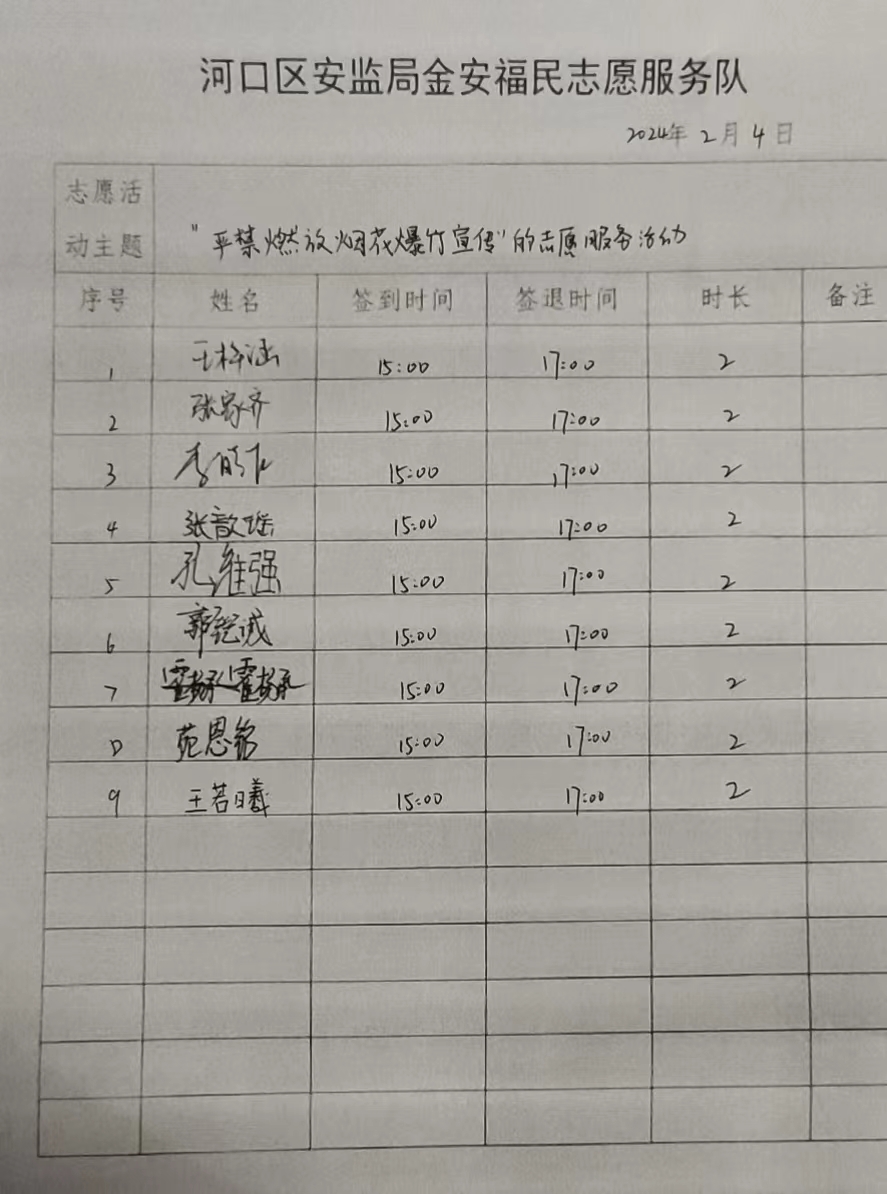 河口区安监局金安福民志愿服务队
2024年 2月 4日
志愿活动主题 "严禁燃放烟花爆竹宣传"的志愿服务活动
序号 姓名 签到时间 签退时间 时长 备注
1 王梓涵 15:00 17:00 2
2 张家齐 15:00 17:00 2
3 李 15:00 17:00 2
4 张歆瑶 15:00 17:00 2
5 孔维强 15:00 17:00 2
6 郭 诚 15:00 17:00 2
7 15:00 17:00 2
8 苑恩铭 15:00 17:00 2
9 王若曦 15:00 17:00 2